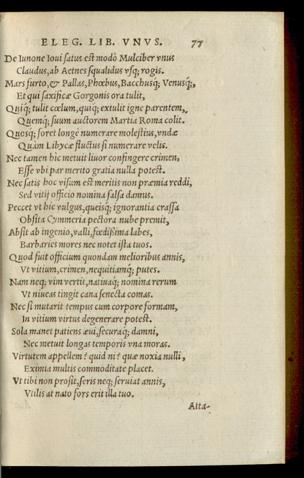 ELEG. LIB. VNVS. 77
De Iunone Ioui satus est modò Mulciber vnus
Claudus, ab Aetnes squalidus vsq; rogis.
Mars furto, & Pallas, Phœbus, Bacchusq́; Venusq́;,
Et qui saxificæ Gorgonis ora tulit,
Quiq́; tulit cœlum, quiq́; extulit igne parentem,
Quemq́; suum auctorem Martia Roma colit.
Quosq́; foret longè numerare molestius, vndæ
Quàm Libycæ fluctus si numerare velis.
Nec tamen hic metuit liuor confingere crimen,
Esse vbi par merito gratia nulla potest.
Nec satis hoc visum est meritis non præmia reddi,
Sed vitij officio nomina falsa damus.
Peccet vt hic vulgus, queisq́; ignorantia crassa
Obsita Cymmeria pectora nube premit,
Absit ab ingenio, valli, fœdissima labes,
Barbaries mores nec notet ista tuos.
Quod fuit officium quondam melioribus annis,
Vt vitium, crimen, nequitiamq́; putes.
Nam neq; vim vertit, natiuaq́; nomina rerum
Vt niueas tingit cana senecta comas.
Nec si mutarit tempus cum corpore formam,
In vitium virtus degenerare potest.
Sola manet patiens æui, securaq́; damni,
Nec metuit longas temporis vna moras.
Virtutem appellem? quid ni? quæ noxia nulli,
Eximia multis commoditate placet.
Vt tibi non prosit, seris neq; seruiat annis,
Vtilis at nato fors erit illa tuo.
Alta-